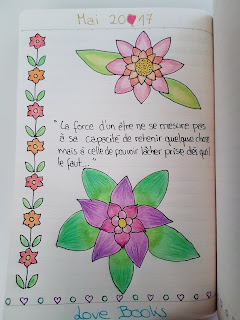 Mai 2017
"La force d'un être ne se mesure pas
à sa capacité de retenir quelque chose
mais à celle de pouvoir lâcher prise dès qu'il
le faut..."
Love Books